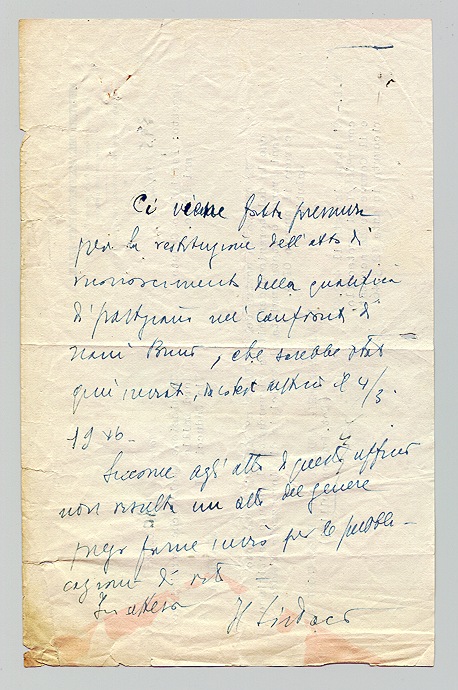 Ci viene fatta premura
per la restituzione dell'atto di
riconoscimento della qualifica
di partigiano nei confronti di
Nani Bruno, che sarebbe stato
qui inviato, da codest ufficio il 4/3.
1946.
Siccome agli atti di questo ufficio
non risulta un atto del genere
prego farne invio per le pubbli-
cazioni di rito
In attesa
Il Sindaco